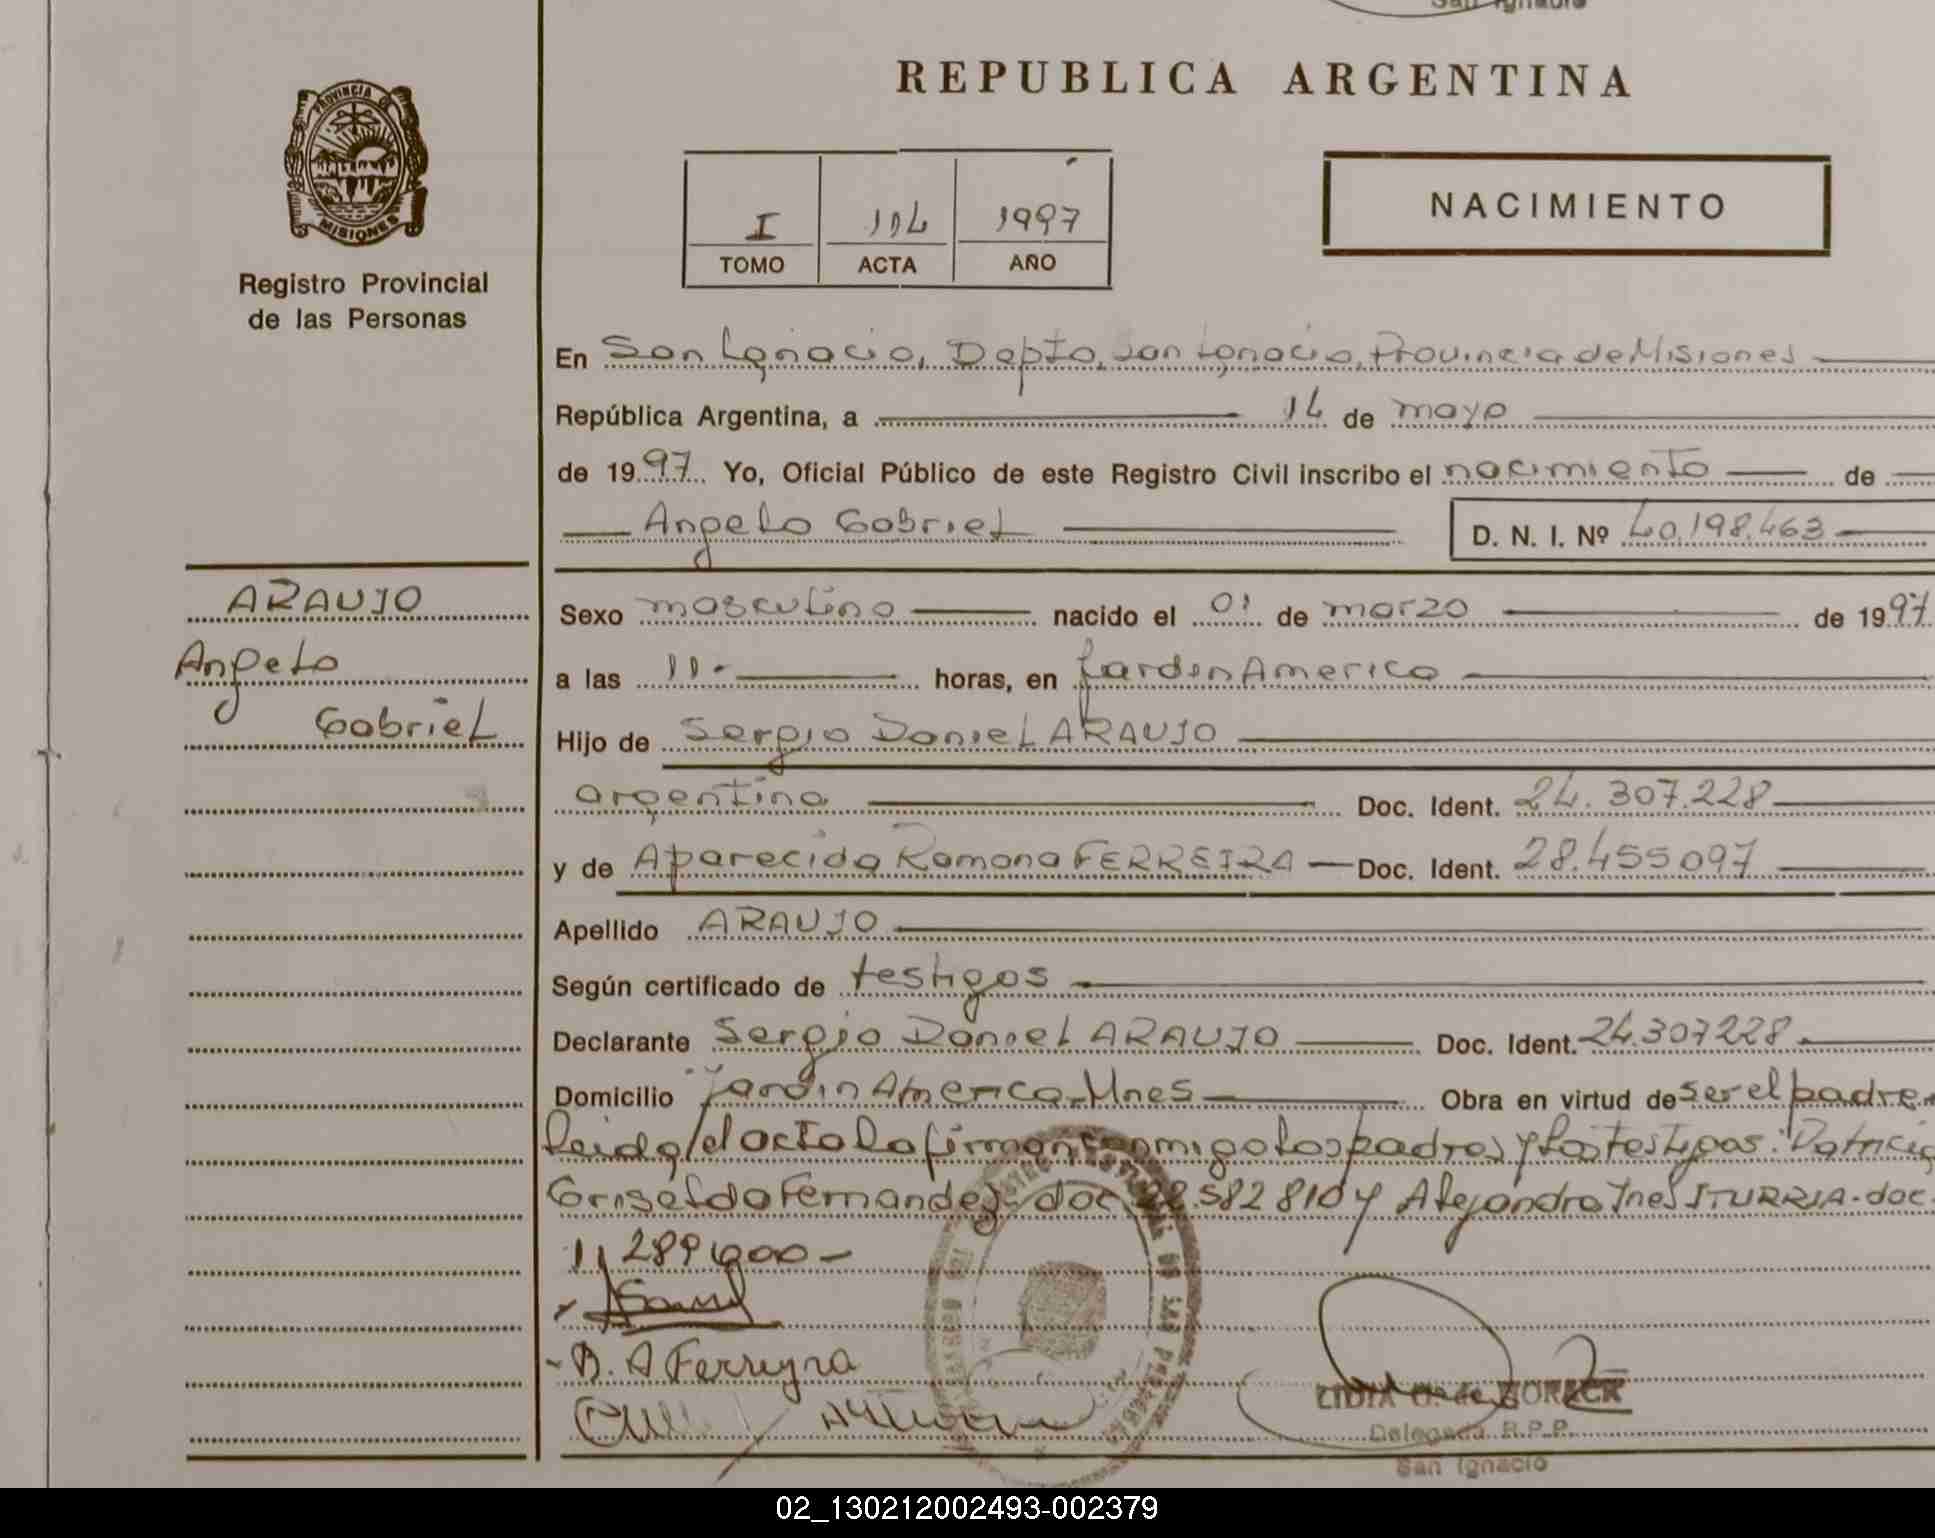 San Ignacio
REPUBLICA ARGENTINA
PROVINCIA DE
MISIONES
Registro Provincial
de las Personas
I 114 1997
TOMO ACTA AÑO
NACIMIENTO
En San Ignacio, Depto, San Ignacio, Provincia de Misiones
República Argentina, a 14 de mayo
de 1997. Yo, Oficial Público de este Registro Civil inscribo el nacimiento de
Angelo Gabriel D. N. I. Nº 40.198.463
ARAUJO
Angelo
Gabriel
Sexo masculino nacido el 01 de marzo de 1997
a las 11- horas, en Jardin America
Hijo de Sergio Daniel ARAUJO
argentino Doc. Ident. 24.307.228
y de Aparecida Ramona FERREIRA Doc. Ident. 28.455097
Apellido ARAUJO
Según certificado de testigos
Declarante Sergio Daniel ARAUJO Doc. Ident. 24.307228
Domicilio Jardin America-Mnes Obra en virtud de ser el padre
leida el acta la firman conmigo los padres y los testigos: Patricia
Griselda Fernandez doc. 582810 y Alejandra Ines ITURRIA-doc.
B. A Ferreyra
LIDIA
Delegada R.P.P.
San Ignacio
02_130212002493-002379